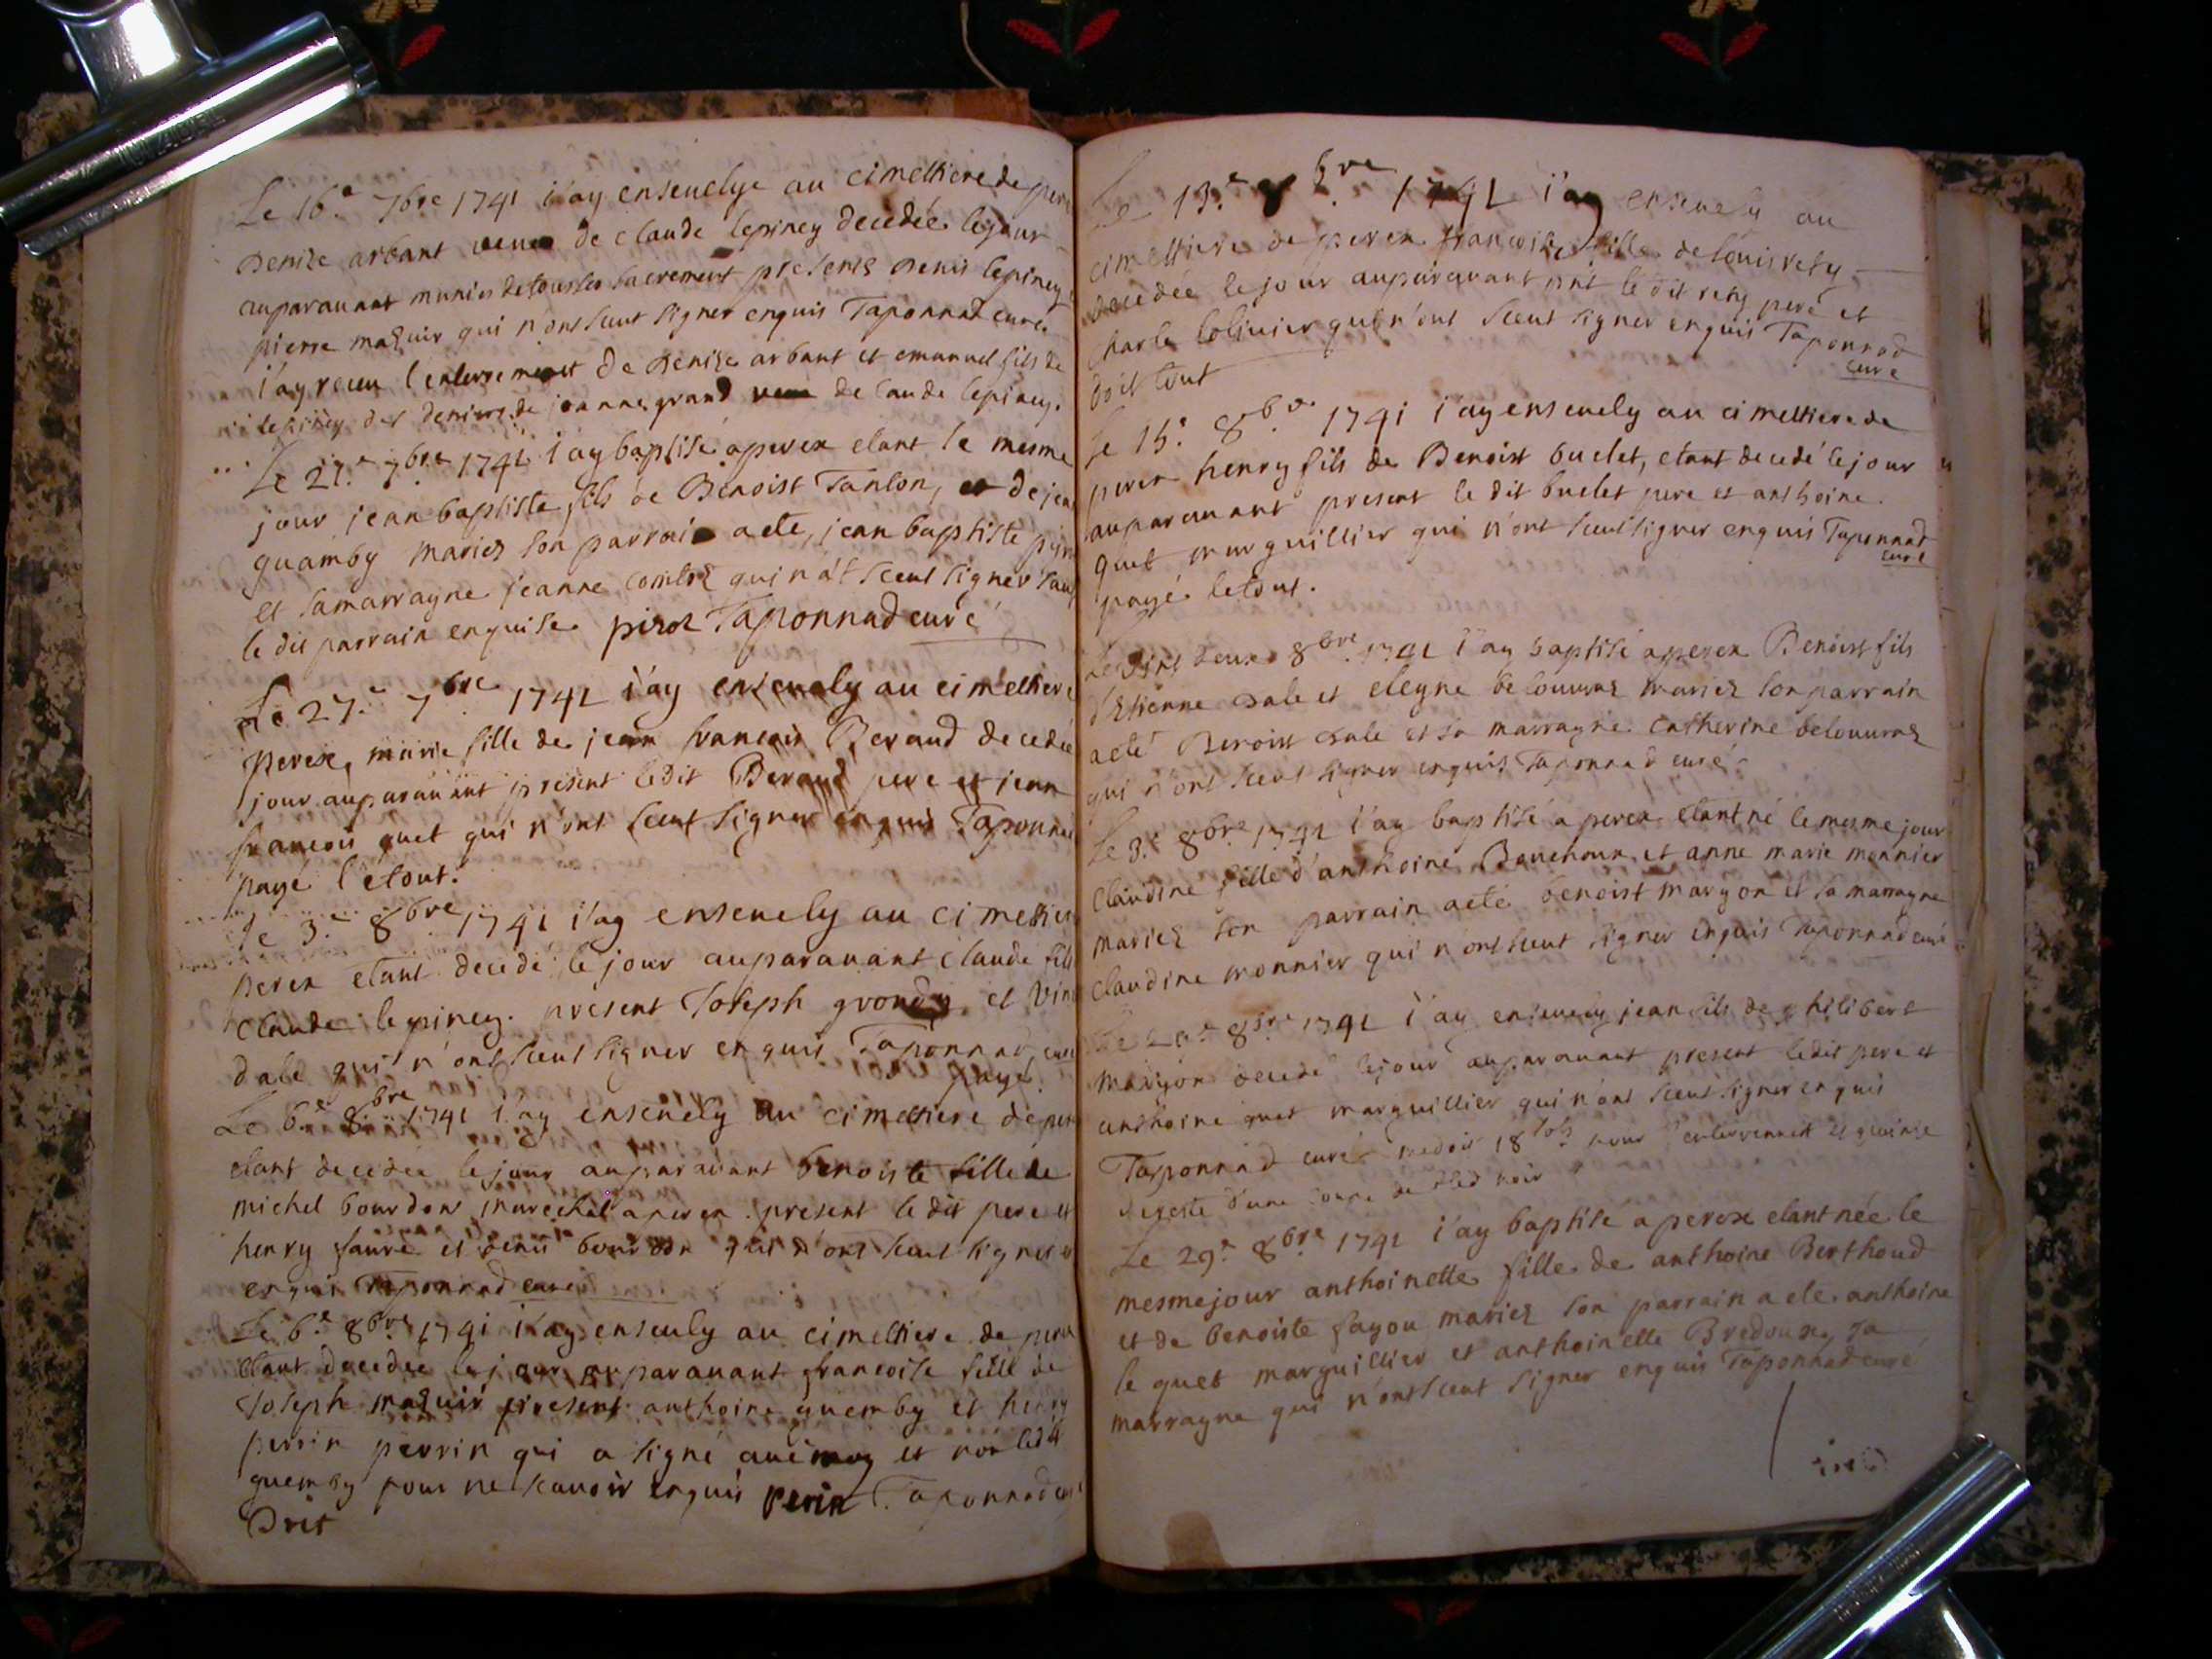 Le 16.e 7bre 1741 i'ay enseuelye au cimettiere de per
Denize arbant veuue de claude lepiney decedée le jour
auparauant munies de tous les sacrement presents Denis lepiney
pierre maquir qui n'ont sceut signer enquis Taponnad curé
i'ay receu l'enterrement de Denize arbant et emanuel fils de
lepiney des deniers de jeanne grand veuue de laude lepiney.
Le 21.e 7bre 1741 i'ay baptisé a perex etant le mesme
jour jean baptiste fils de Benoist Tanlon, et de jea
quamby mariez son parrain a ete, jean baptiste
et sa marrayne jeanne qui n'at sceut signer
le dit parrain enquise piroz Taponnad curé
Le 27.e 7bre 1741 i'ay enseuely au cimettiere
perex, marie fille de jean francois Beraud decedée
jour auparauant present ledit Beraud pere et jean
francois guet qui n'ont sceut signer enquis Taponnad
payé le tout.
Le 3.e 8bre 1741 i'ay enseuely au cimettier
perex etant decedé le jour auparauant claude fils
claude lepiney. present Joseph et Vin
dale qui n'ont sceut signer enquis Taponnad curé
payé.
Le 6.e 8bre 1741 i'ay enseuely au cimettiere de per
etant decedée le jour auparauant benoiste fille de
michel bourdon marechal a perex. present le dit pere et
henry faure et denis bourdon qui n'ont sceut signer
enquis Taponnad curé
Le 6.e 8bre 1741 i'ay enseuly au cimettiere de perex
etant decedée le jour auparauant francoise fille de
Joseph maquir present anthoine guemby et henry
perrin perrin qui a signé auec moy et non ledit
guemby pour ne scauoir enquis perin Taponnad curé
Doit
Le 13.e 8bre 1741 i'ay enseuely au
cimettiere de perex francoise fille de louis rety
decedée le jour auparauant pnt le dit rety pere et
charle loliuier qui n'ont sceut signer enquis Taponnad
curé
doit tout
Le 15.e 8bre 1741 i'ay enseuely au cimettiere de
perex henry fils de Benoist buelet, etant decedé le jour
auparauant present le dit buelet pere et anthoine
guet marguillier qui n'ont sceut signer enquis Taponnad
curé
payé le tout.
Le vint deux 8bre 1741 i'ay baptisé a perex Benoist fils
d'Etienne dale et eleyne belouuraz mariez son parrain
a eté Benoist dale et sa marrayne catherine belouuraz
qui n'ont sceut signer enquis Taponnad curé
Le 3.e 8bre 1741 i'ay baptisé a perex etant né le mesme jour
claudine fille d'anthoine Bouchoux et anne marie monnier
mariez son parrain a eté benoist maryon et sa marrayne
claudine monnier qui n'ont sceut signer enquis Taponnad curé
Le 8bre 1741 i'ay enseuely jean fils de philibert
maryon decedé le jour auparauant present ledit pere et
anthoine guet marguillier qui n'ont sceut signer enquis
Taponnad curé me doit 18 sols pour l'enterrement et quinze
de reste d'une coupe de bled noir
Le 29.e 8bre 1741 i'ay baptisé a perex etant née le
mesme jour anthoinette fille de anthoine Berthoud
et de benoiste fayou mariez son parrain a ete anthoine
le guet marguillier et anthoinette Bredoux sa
marrayne qui n'ont sceut signer enquis Taponnad curé